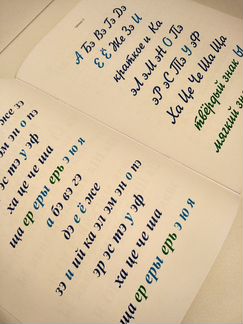 А Бэ Вэ Гэ Дэ
Е Ё Же Зэ И
краткое и Ка
эЛ эМ эН О Пэ
эР эС Тэ У эФ
Ха Це Че Ша Ща
твёрдый знак
мягкий знак
же зэ
эм эн о пэ
эр эс тэ у эф
ха це че ша
ща ер еры ерь э ю я
а бэ вэ гэ
дэ е ё же
зэ и ий ка эл эм эн о пэ
эр эс тэ у эф
ха це че ша
ща ер еры ерь э ю я